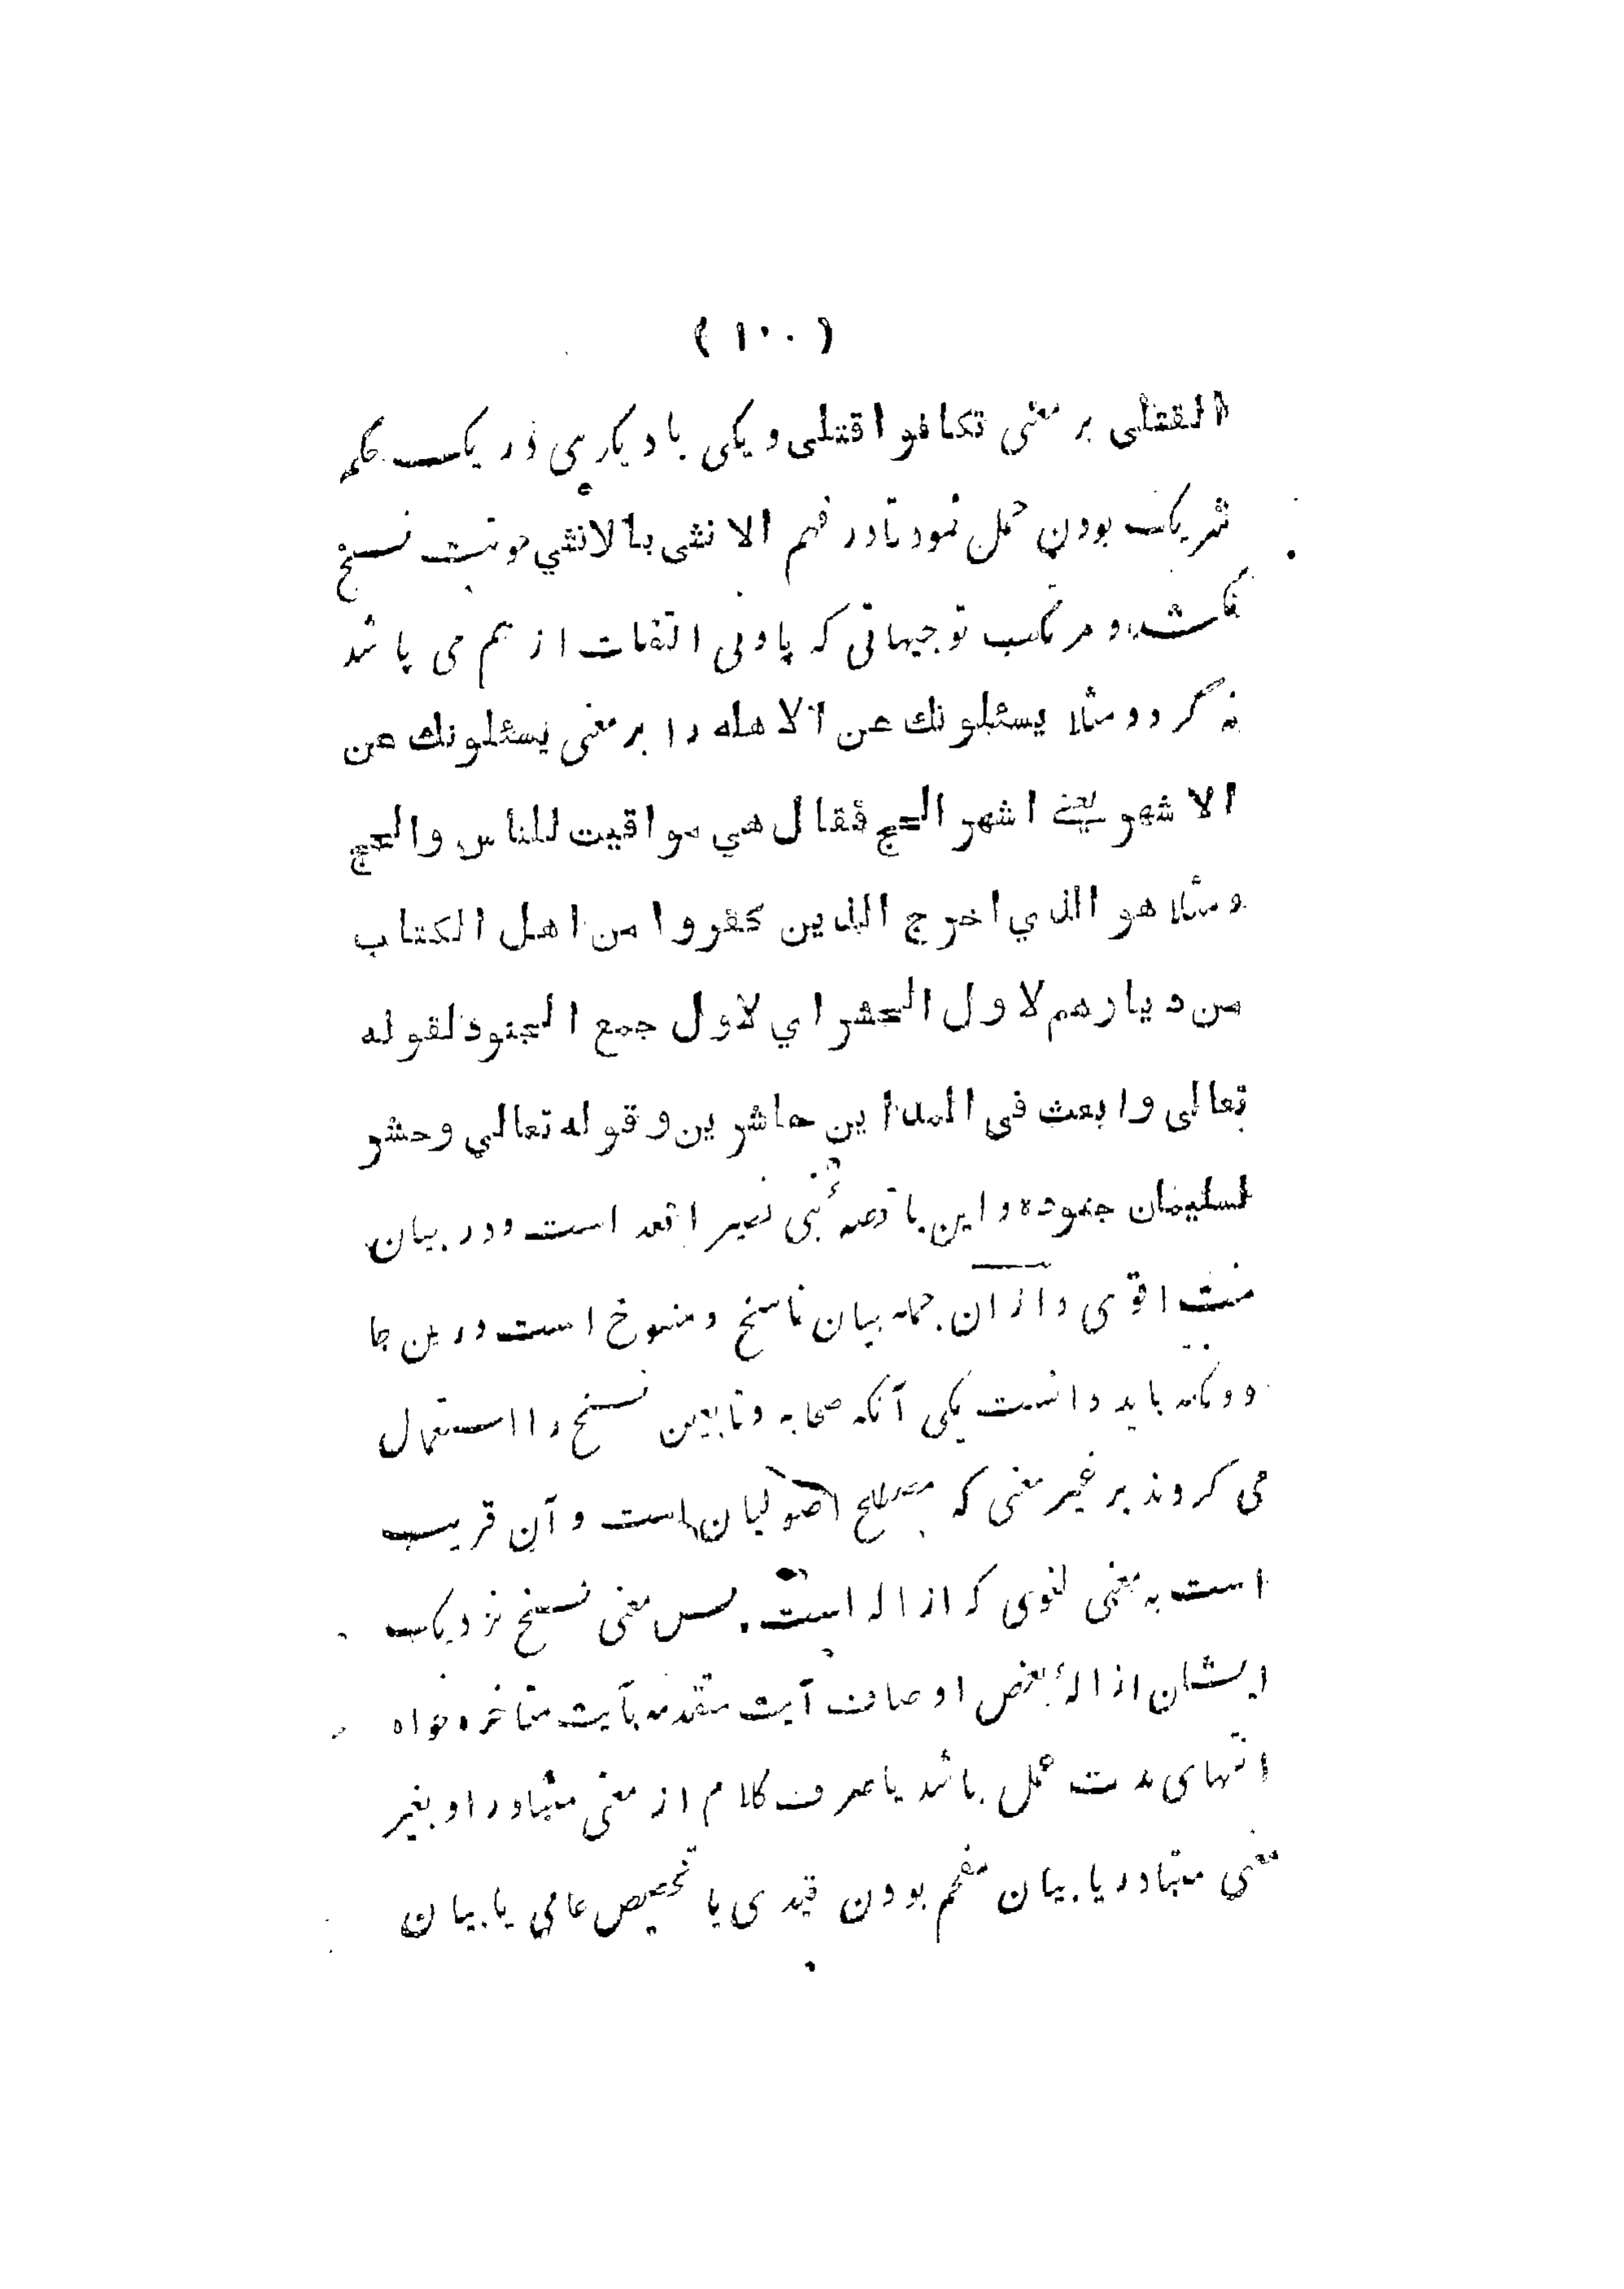 (١٠٠)
القتلی بر معنی تکافوا قتلی و یکی با دیگری در یک حکم
شریک بودن حمل نمود تا در فهم الانثی بالانثي موتنت نسخ
نکشد و مرتکب توجیهاتی که بادنی التفات از هم می پاشد
نه گردد و مثلا یسئلونك عن الاهله را بر معنی یسئلونك عن
الاشهر یعنے اشهر الحج فقال هي مواقیت للناس والحج
و مثلا هو الذي اخرج الذین کفروا من اهل الکتاب
من دیارهم لاول الحشر اي لاول جمع الجنود لقوله
تعالی وابعث فی المداین حاشرین و قوله تعالي وحشر
لسلیمان جنوده و این با قصه بنی نضیر اقعد است و در بیان
منت اقوی و ازان جمله بیان ناسخ و منسوخ است درین جا
دو نکته باید دانست یکی آنکه صحابه و تابعین نسخ را استعمال
می کردند بر غیر معنی که مصطلح اصولیان است و آن قریب
است به معنی لغوی که ازاله است پس معنی نسخ نزدیک
ایشان ازالهٔ بعض اوصاف آیت متقدمه بآیت متاخره خواه
انتهای مدت عمل باشد یا صرف کلام از معنی متبادر او بغیر
معنی متبادر یا بیان مقحم بودن قیدی یا تخصیص عامی یا بیان